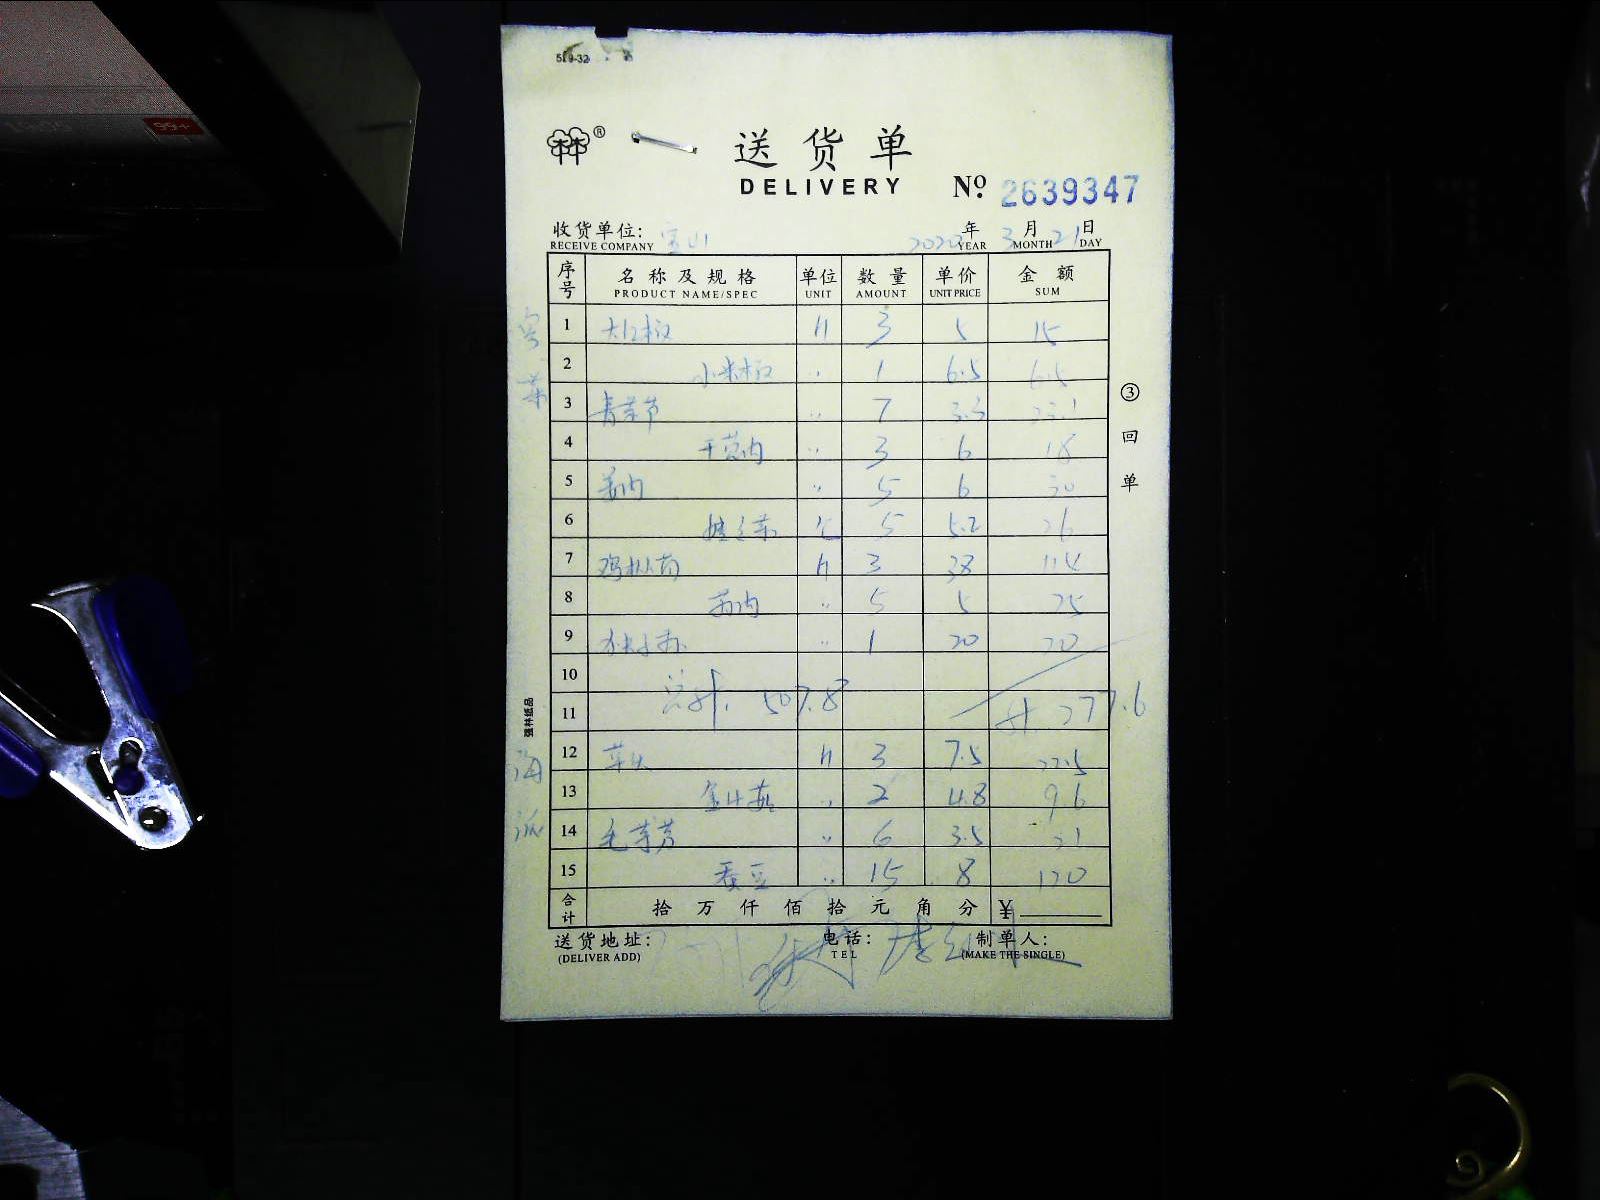 519-32
99+
送货单
DELIVERY
Nº 2639347
收货单位: 宝山 2020年3月21日
RECEIVE COMPANY YEAR MONTH DAY
序号 名称及规格 单位 数量 单价 金额
PRODUCT NAME/SPEC UNIT AMOUNT UNIT PRICE SUM
1 大红椒 斤 3 5 15
2 小米椒 〃 1 6.5 6.5
3 〃 7 3.3 23.1
4 〃 3 6 18
5 姜肉 〃 5 6 30
6 娃娃菜 5 5.2 26
7 鸡枞菌 斤 3 38 114
8 〃 5 5 25
9 〃 1 20 20
10
总计. 507.8
11 计. 277.6
12 草头 斤 3 7.5 22.5
13 金针菇 〃 2 4.8 9.6
14 毛芋艿 〃 6 3.5 21
15 蚕豆 〃 15 8 120
合计 拾万仟佰拾元角分 ¥
送货地址: 电话: 制单人:
(DELIVER ADD) TEL (MAKE THE SINGLE)
③回单
强林纸品
海派